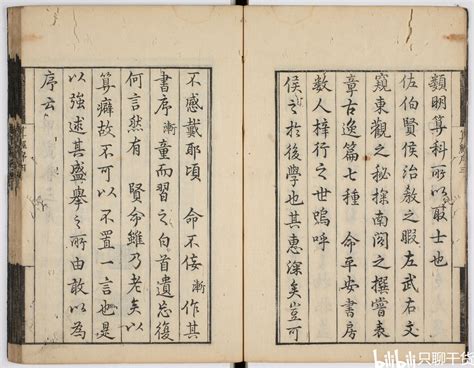 類明算科所以取士也
佐伯賢侯治教之暇左武右文
窺東觀之秘探南閣之撰嘗裒
章古逸篇七種 命平安書房
數人梓行之世嗚呼
侯之於後學也其惠深矣豈可
不感戴耶頃 命不佞漸作其
書序漸童而習之白首遺忘復
何言然有 賢命雖乃老矣以
算癖故不可以不置一言也是
以強述其盛舉之所由敢以為
序云
bilibili 只聊干货